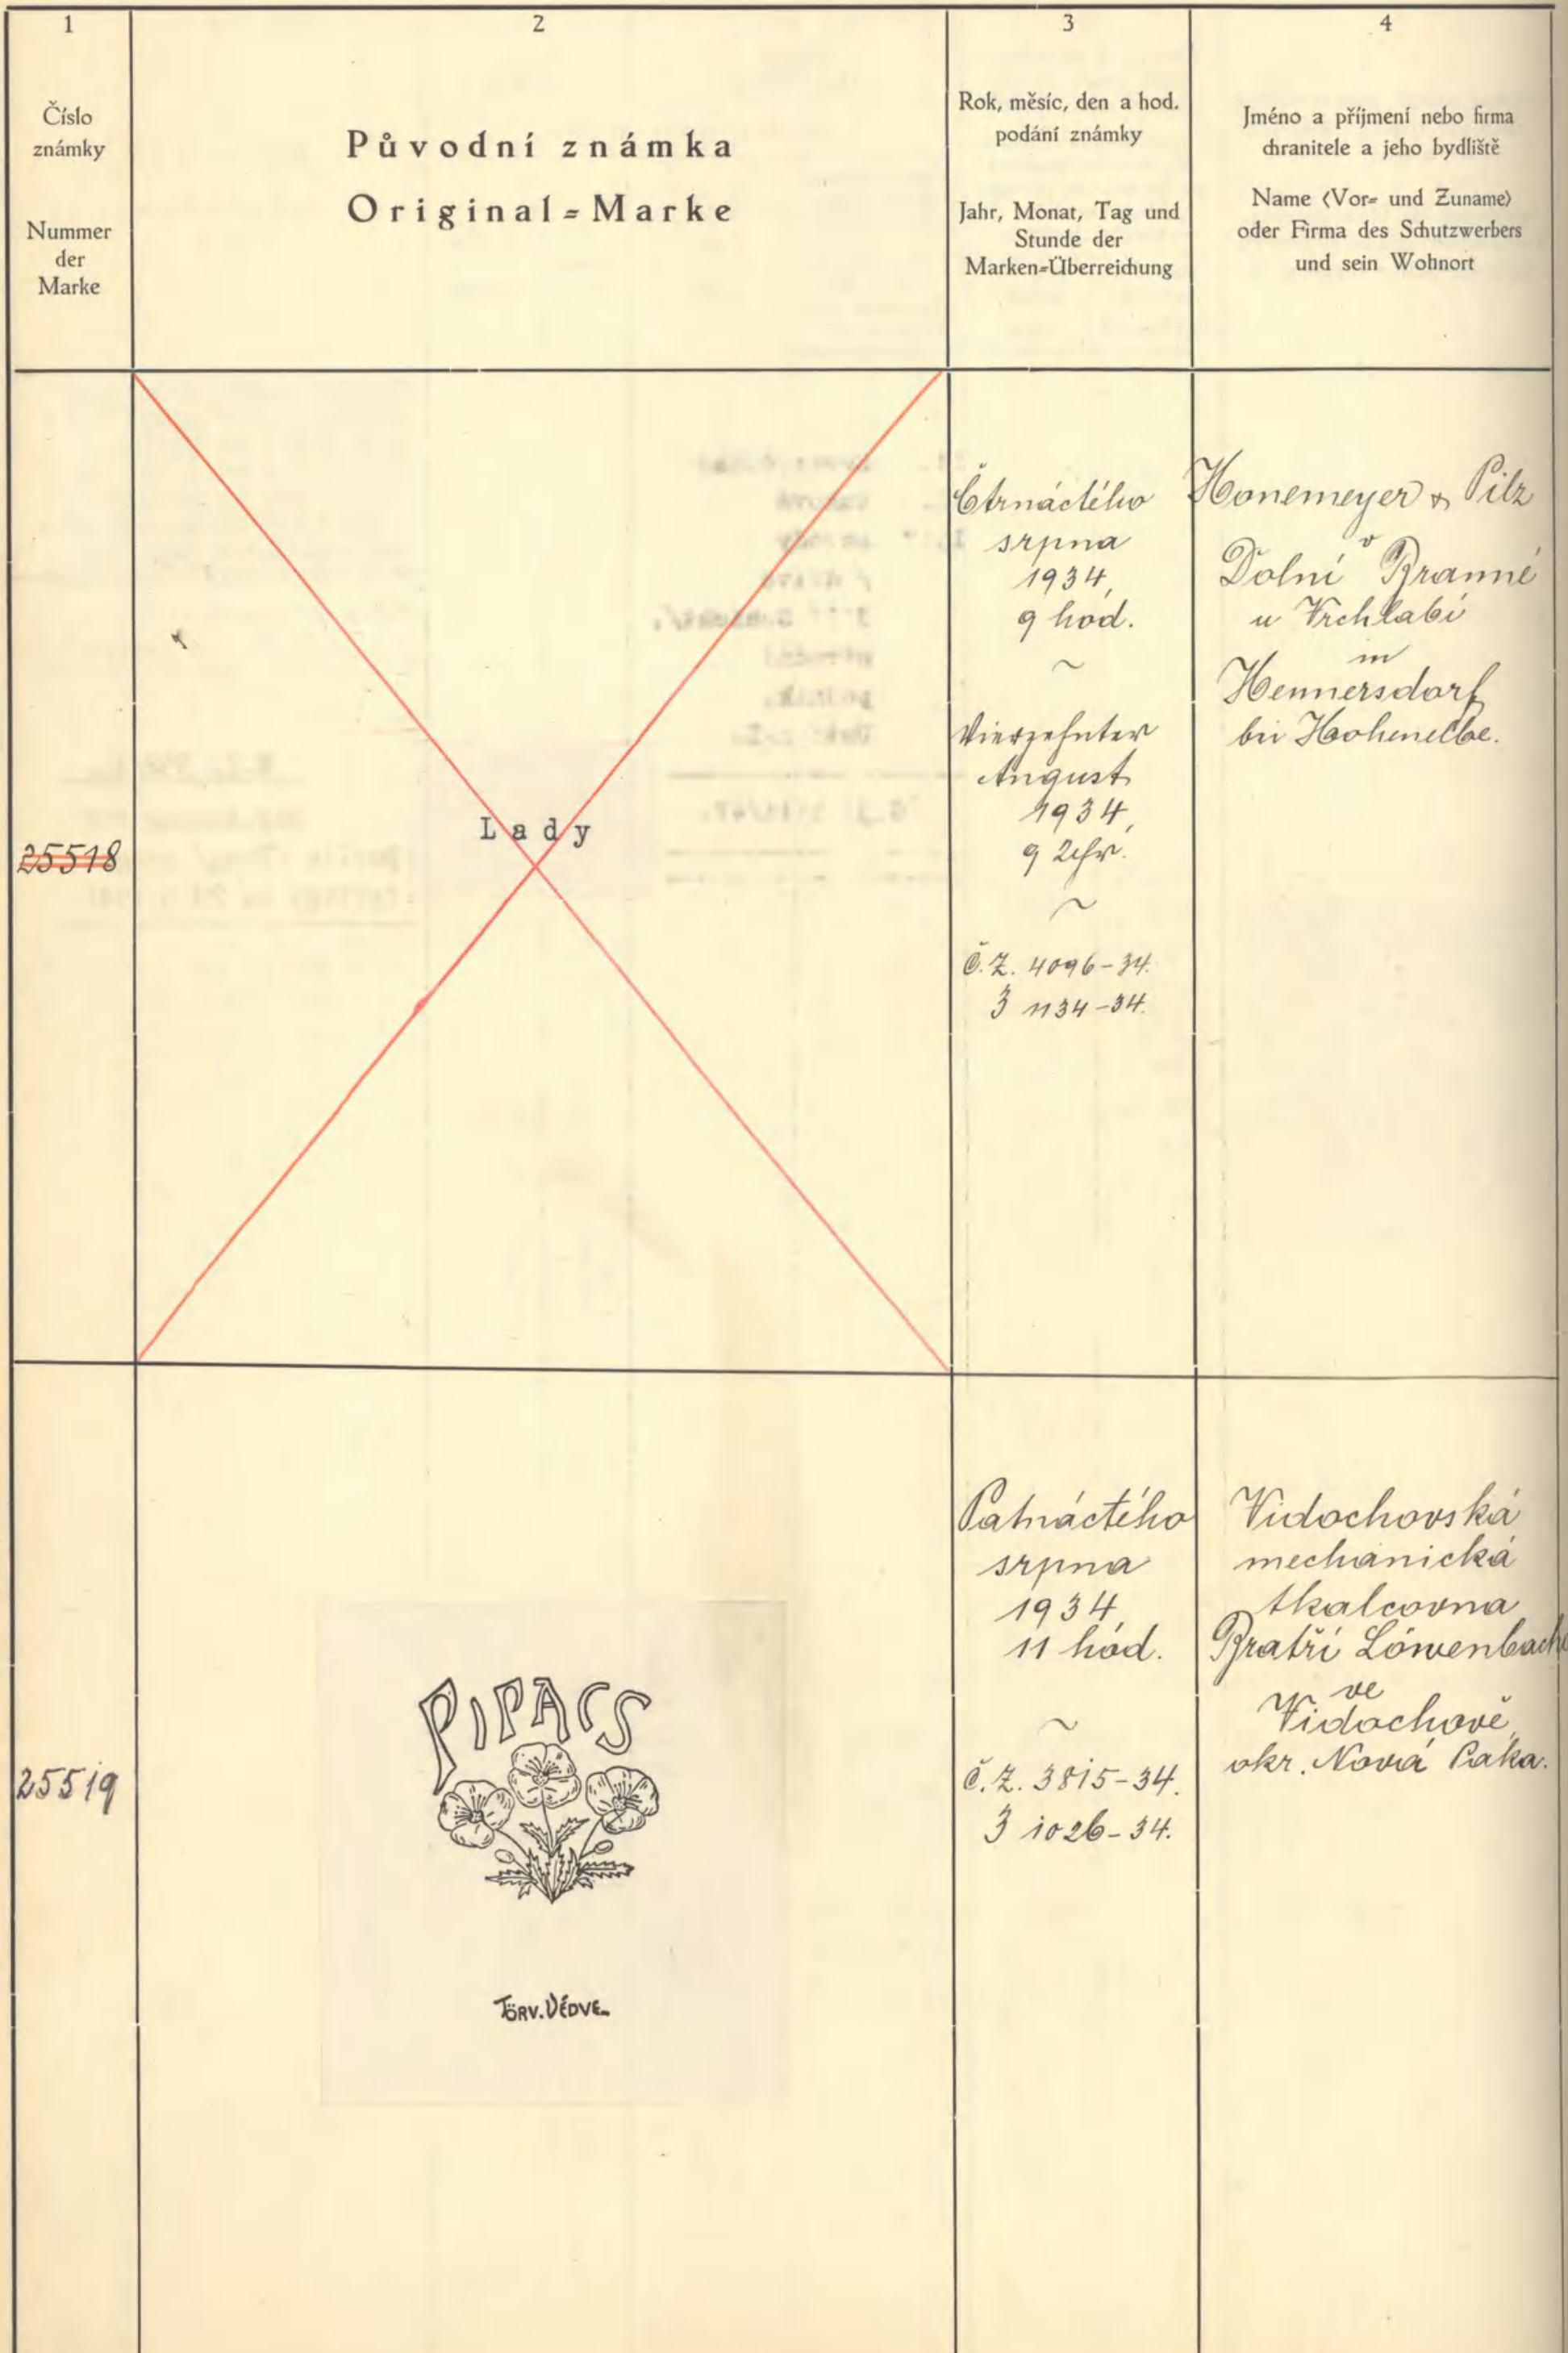 1
2
3
4
Číslo
známky
Nummer
der
Marke
Původní známka
Original=Marke
Rok, měsíc, den a hod.
podání známky
Jahr, Monat, Tag und
Stunde der
Marken=Überreichung
Jméno a příjmení nebo firma
chranitele a jeho bydliště
Name (Vor= und Zuname)
oder Firma des Schutzwerbers
und sein Wohnort
25518
Lady
Čtrnáctého
srpna
1934,
9 hod.
~
Vierzehnter
August
1934,
9 Uhr.
~
č.ž. 4096-34.
3 1134-34.
Honemeyer & Pilz
v
Dolní Branné
u Vrchlabí
in
Hennersdorf
bei Hohenelbe.
25519
PIPACS
TÖRV. VÉDVE
Patnáctého
srpna
1934,
11 hod.
~
č.ž. 3815-34.
3 1026-34.
Vidochovská
mechanická
tkalcovna
Bratří Löwenbach
ve
Vidochově,
okr. Nová Paka.